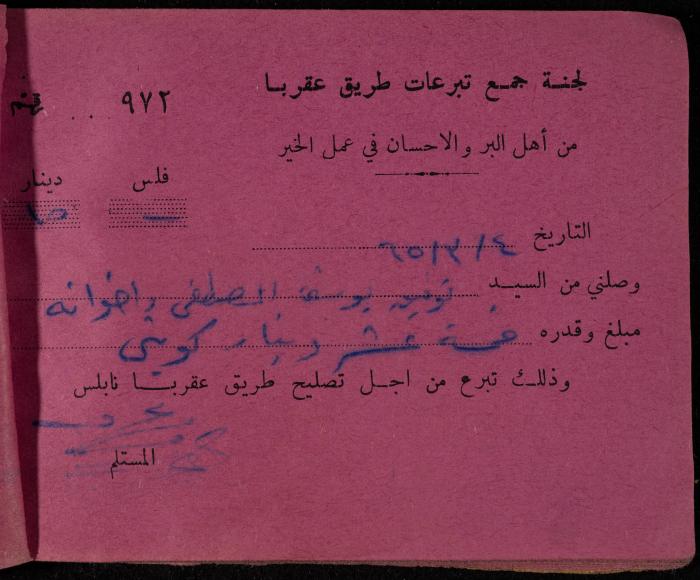 لجنة جمع تبرعات طريق عقربا
٩٧٢ . . .
من أهل البر والاحسان في عمل الخير
فلس دينار
— ١٥
التاريخ ٤/٣/٦٥
وصلني من السيد توفيق يوسف المصطفى واخوانه
مبلغ وقدره خمسة عشر دينار كويتي
وذلك تبرع من اجل تصليح طريق عقربا نابلس
المستلم